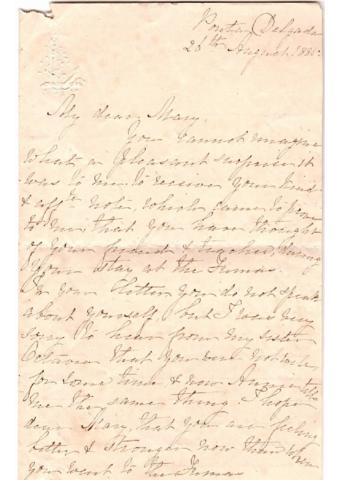 Ponta Delgada
26th August 1885
My dear Mary,
You cannot imagine
what a pleasant surprise it
was to me to receive your kind
& affte note, which came to prove
to me that you have thought
of your friend & teacher, during
your stay at the Furnas.
In your letter you do not speak
about yourself, but I was very
sorry to hear from my sister
Octavia that you were not well
for some time & now
me the same thing. I hope
dear Mary, that you are feeling
better & stronger now than when
you went to the Furnas